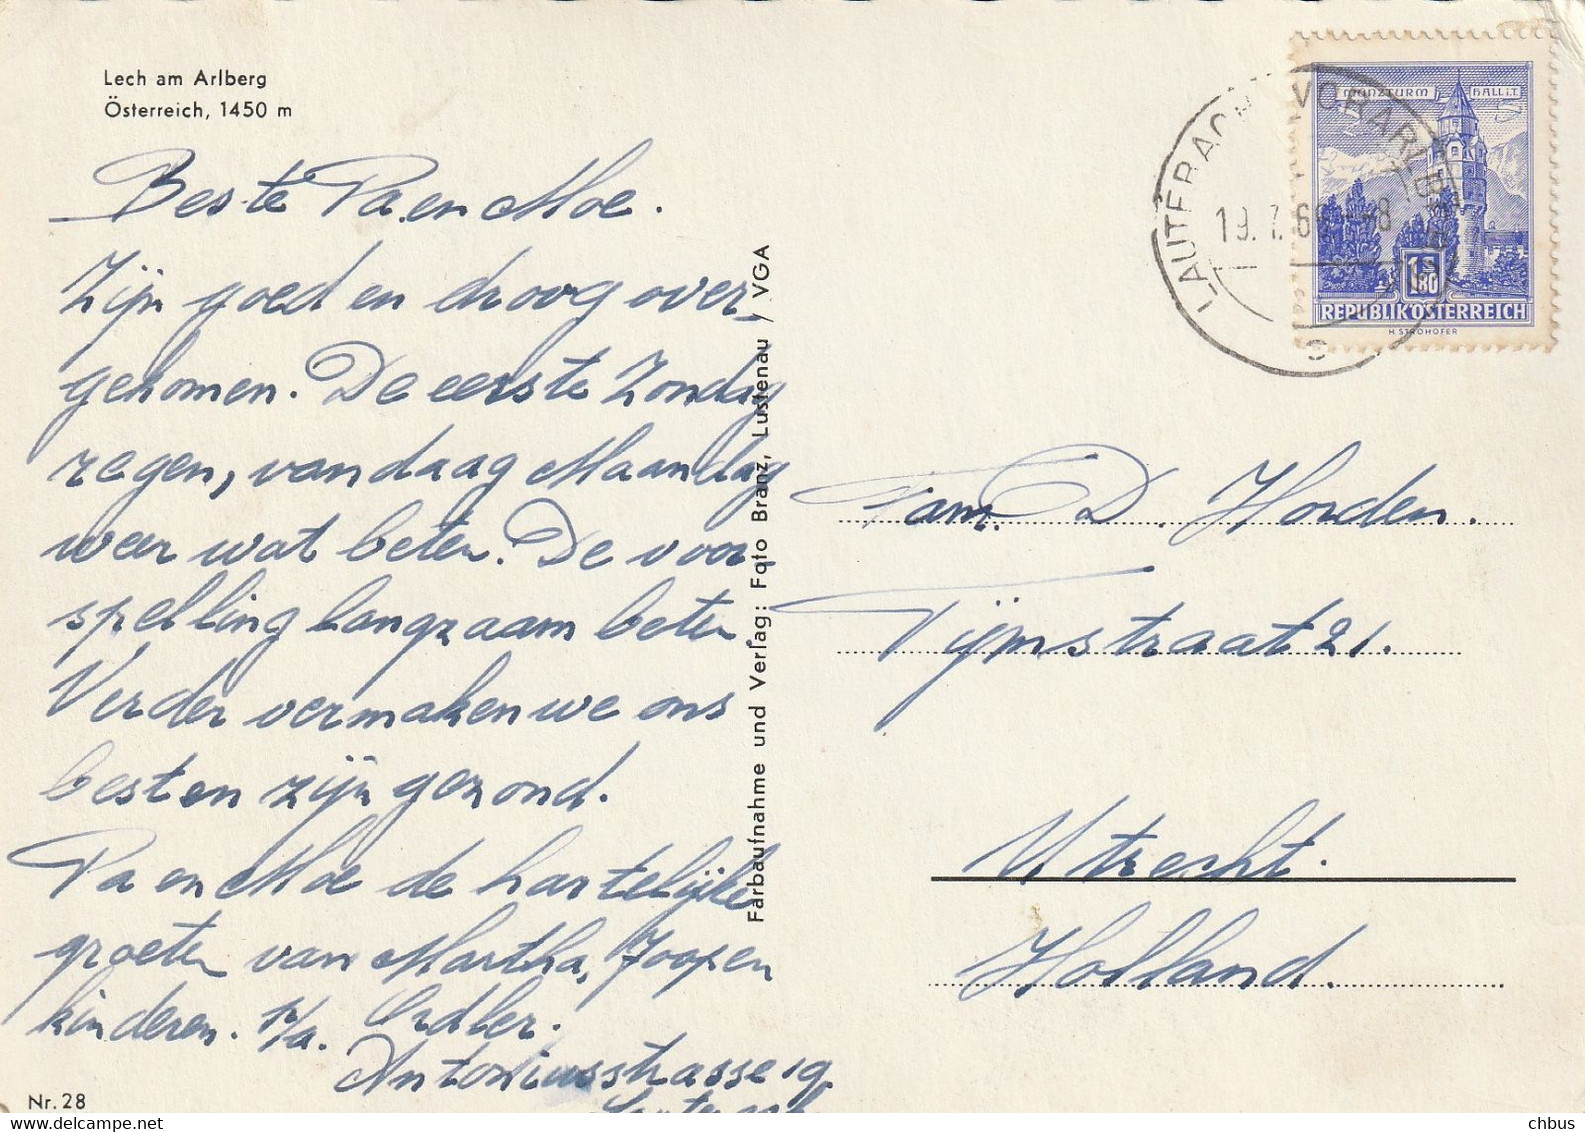 Lech am Arlberg
Österreich, 1450 m
Beste Pa en Moe.
Zijn goed en droog over-
gekomen. De eerste Zondag
regen, vandaag Maandag
weer wat beter. De voor-
spelling langzaam beter
Verder vermaken we ons
best en zijn gezond.
Pa en Moe de hartelijke
groeten van Martha, Joop en
kinderen. p/a.
Antoniusstrasse 19
Nr. 28
Farbaufnahme und Verlag: Foto Branz, Lustenau / VGA
MÜNZTURM HALL i.T.
1.80
REPUBLIK ÖSTERREICH
H. STROHOFER
LAUTERACH VORARLBERG
Fam. D. Horden.
Tijmstraat 21.
Utrecht.
Holland.
chbus